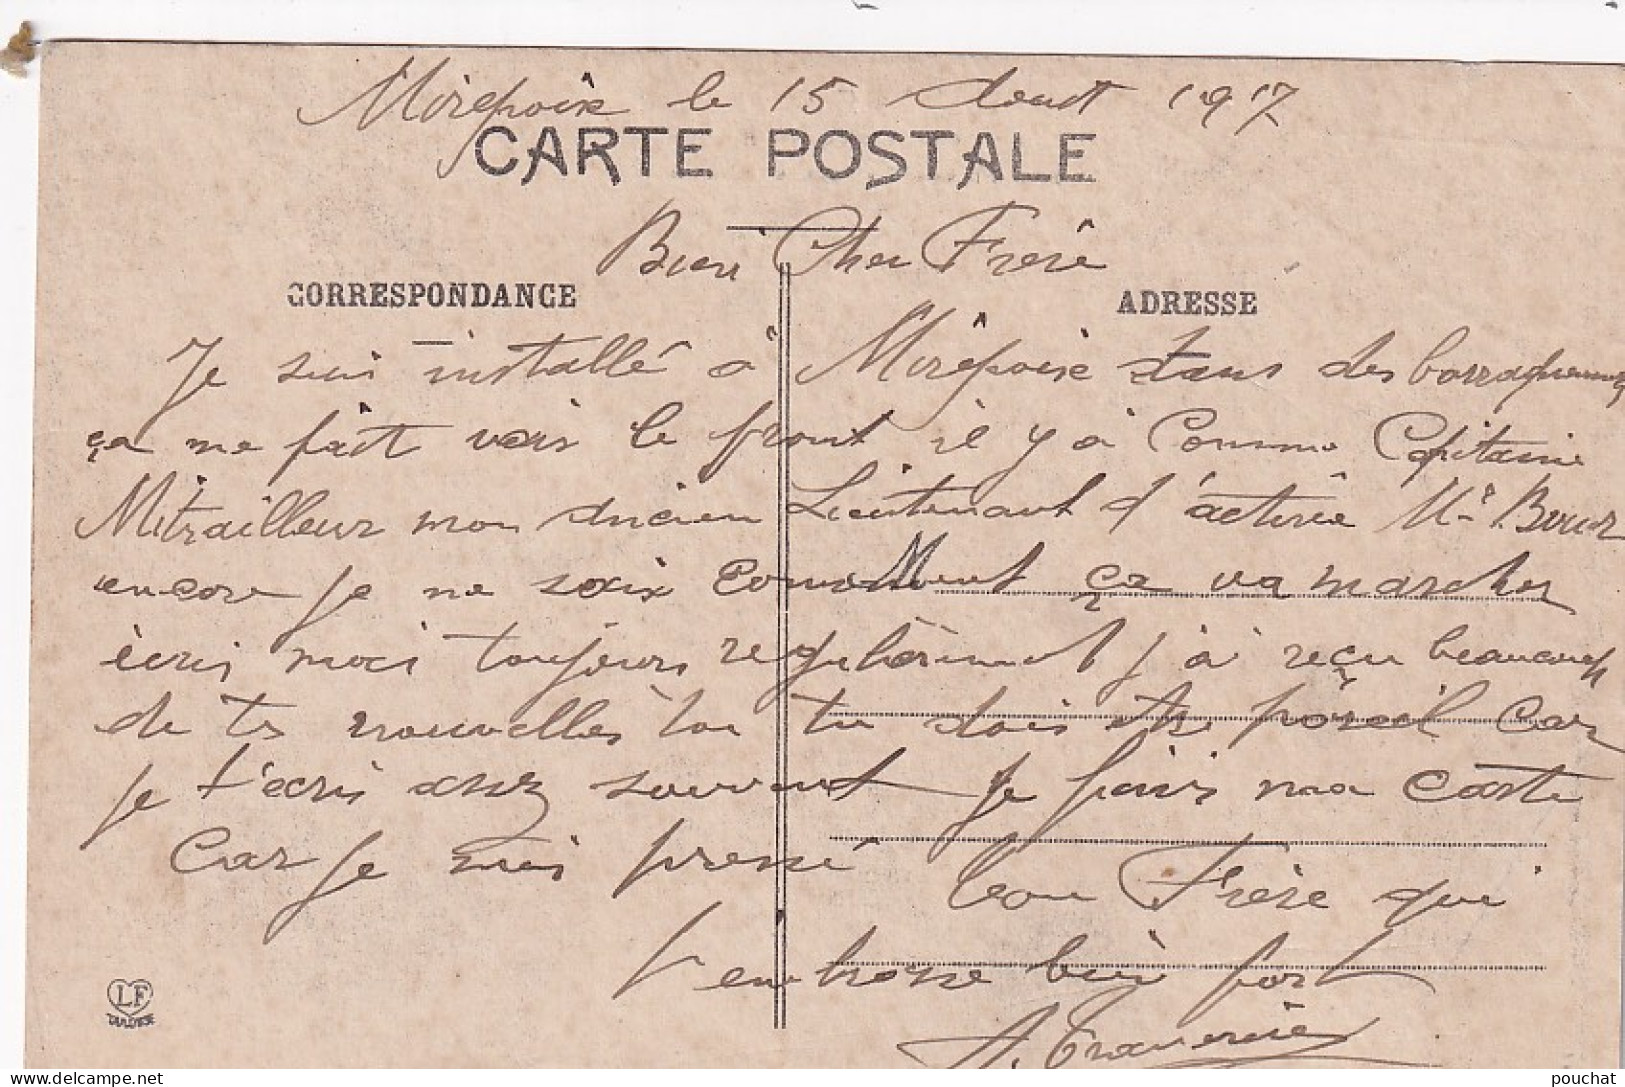 Mirepoix le 15 Aout 1917
CARTE POSTALE
Bien Cher Frère
CORRESPONDANCE
ADRESSE
Je suis installé à Mirepoix dans des
ça me fait voir le front il y à Comme Capitaine
Mitrailleur mon Ancien Lieutenant d'active Mr
encore je ne sais comment ça va marcher
écris moi toujours regulièrement j'ai reçu beaucoup
de tes nouvelles toi tu dois être pareil car
je t'écris assez souvent je finis ma carte
Car je suis pressé
ton Frère qui
t'embrasse bien fort
LF
TOULOUSE
pouchat